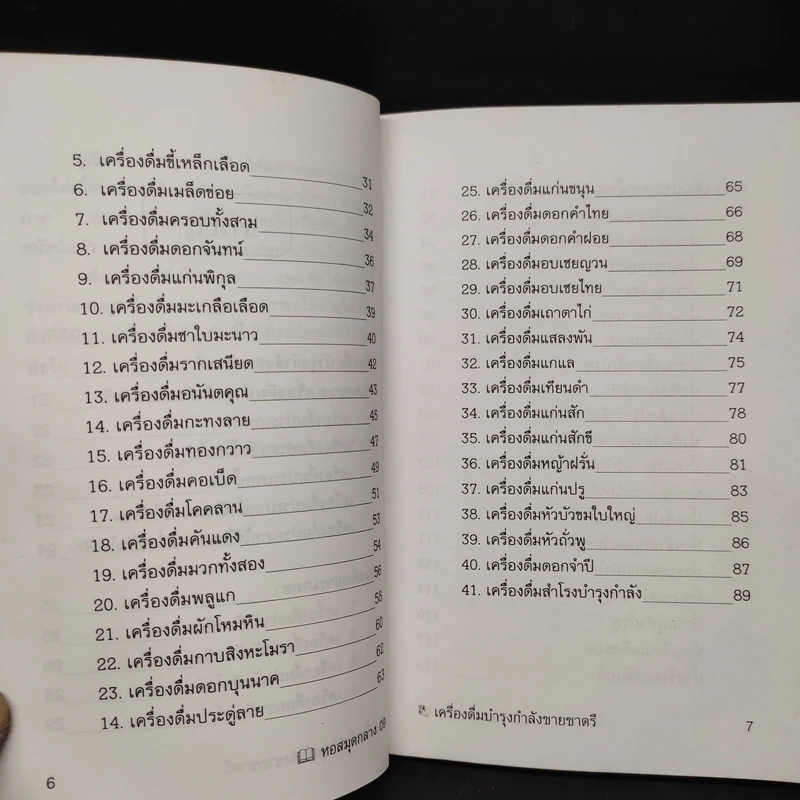 5. เครื่องดื่มขี้เหล็กเลือด 31
6. เครื่องดื่มเมล็ดข่อย 32
7. เครื่องดื่มครอบทั้งสาม 34
8. เครื่องดื่มดอกจันทน์ 36
9. เครื่องดื่มแก่นพิกุล 37
10. เครื่องดื่มมะเกลือเลือด 39
11. เครื่องดื่มชาใบมะนาว 40
12. เครื่องดื่มรากเสนียด 42
13. เครื่องดื่มอนันตคุณ 43
14. เครื่องดื่มกะทงลาย 45
15. เครื่องดื่มทองกวาว 47
16. เครื่องดื่มคอเบ็ด 49
17. เครื่องดื่มโคคลาน 51
18. เครื่องดื่มคันแดง 53
19. เครื่องดื่มมวกทั้งสอง 54
20. เครื่องดื่มพลูแก 56
21. เครื่องดื่มผักโหมหิน 58
22. เครื่องดื่มกาบสิงหะโมรา 60
23. เครื่องดื่มดอกบุนนาค 62
14. เครื่องดื่มประดู่ลาย 63
หอสมุดกลาง 09
6
25. เครื่องดื่มแก่นขนุน 65
26. เครื่องดื่มดอกคำไทย 66
27. เครื่องดื่มดอกคำฝอย 68
28. เครื่องดื่มอบเชยญวน 69
29. เครื่องดื่มอบเชยไทย 71
30. เครื่องดื่มเถาตาไก่ 72
31. เครื่องดื่มแสลงพัน 74
32. เครื่องดื่มแกแล 75
33. เครื่องดื่มเทียนดำ 77
34. เครื่องดื่มแก่นสัก 78
35. เครื่องดื่มแก่นสักขี 80
36. เครื่องดื่มหญ้าฝรั่น 81
37. เครื่องดื่มแก่นปรู 83
38. เครื่องดื่มหัวบัวขมใบใหญ่ 85
39. เครื่องดื่มหัวถั่วพู 86
40. เครื่องดื่มดอกจำปี 87
41. เครื่องดื่มสำโรงบำรุงกำลัง 89
เครื่องดื่มบำรุงกำลังชายชาตรี 7